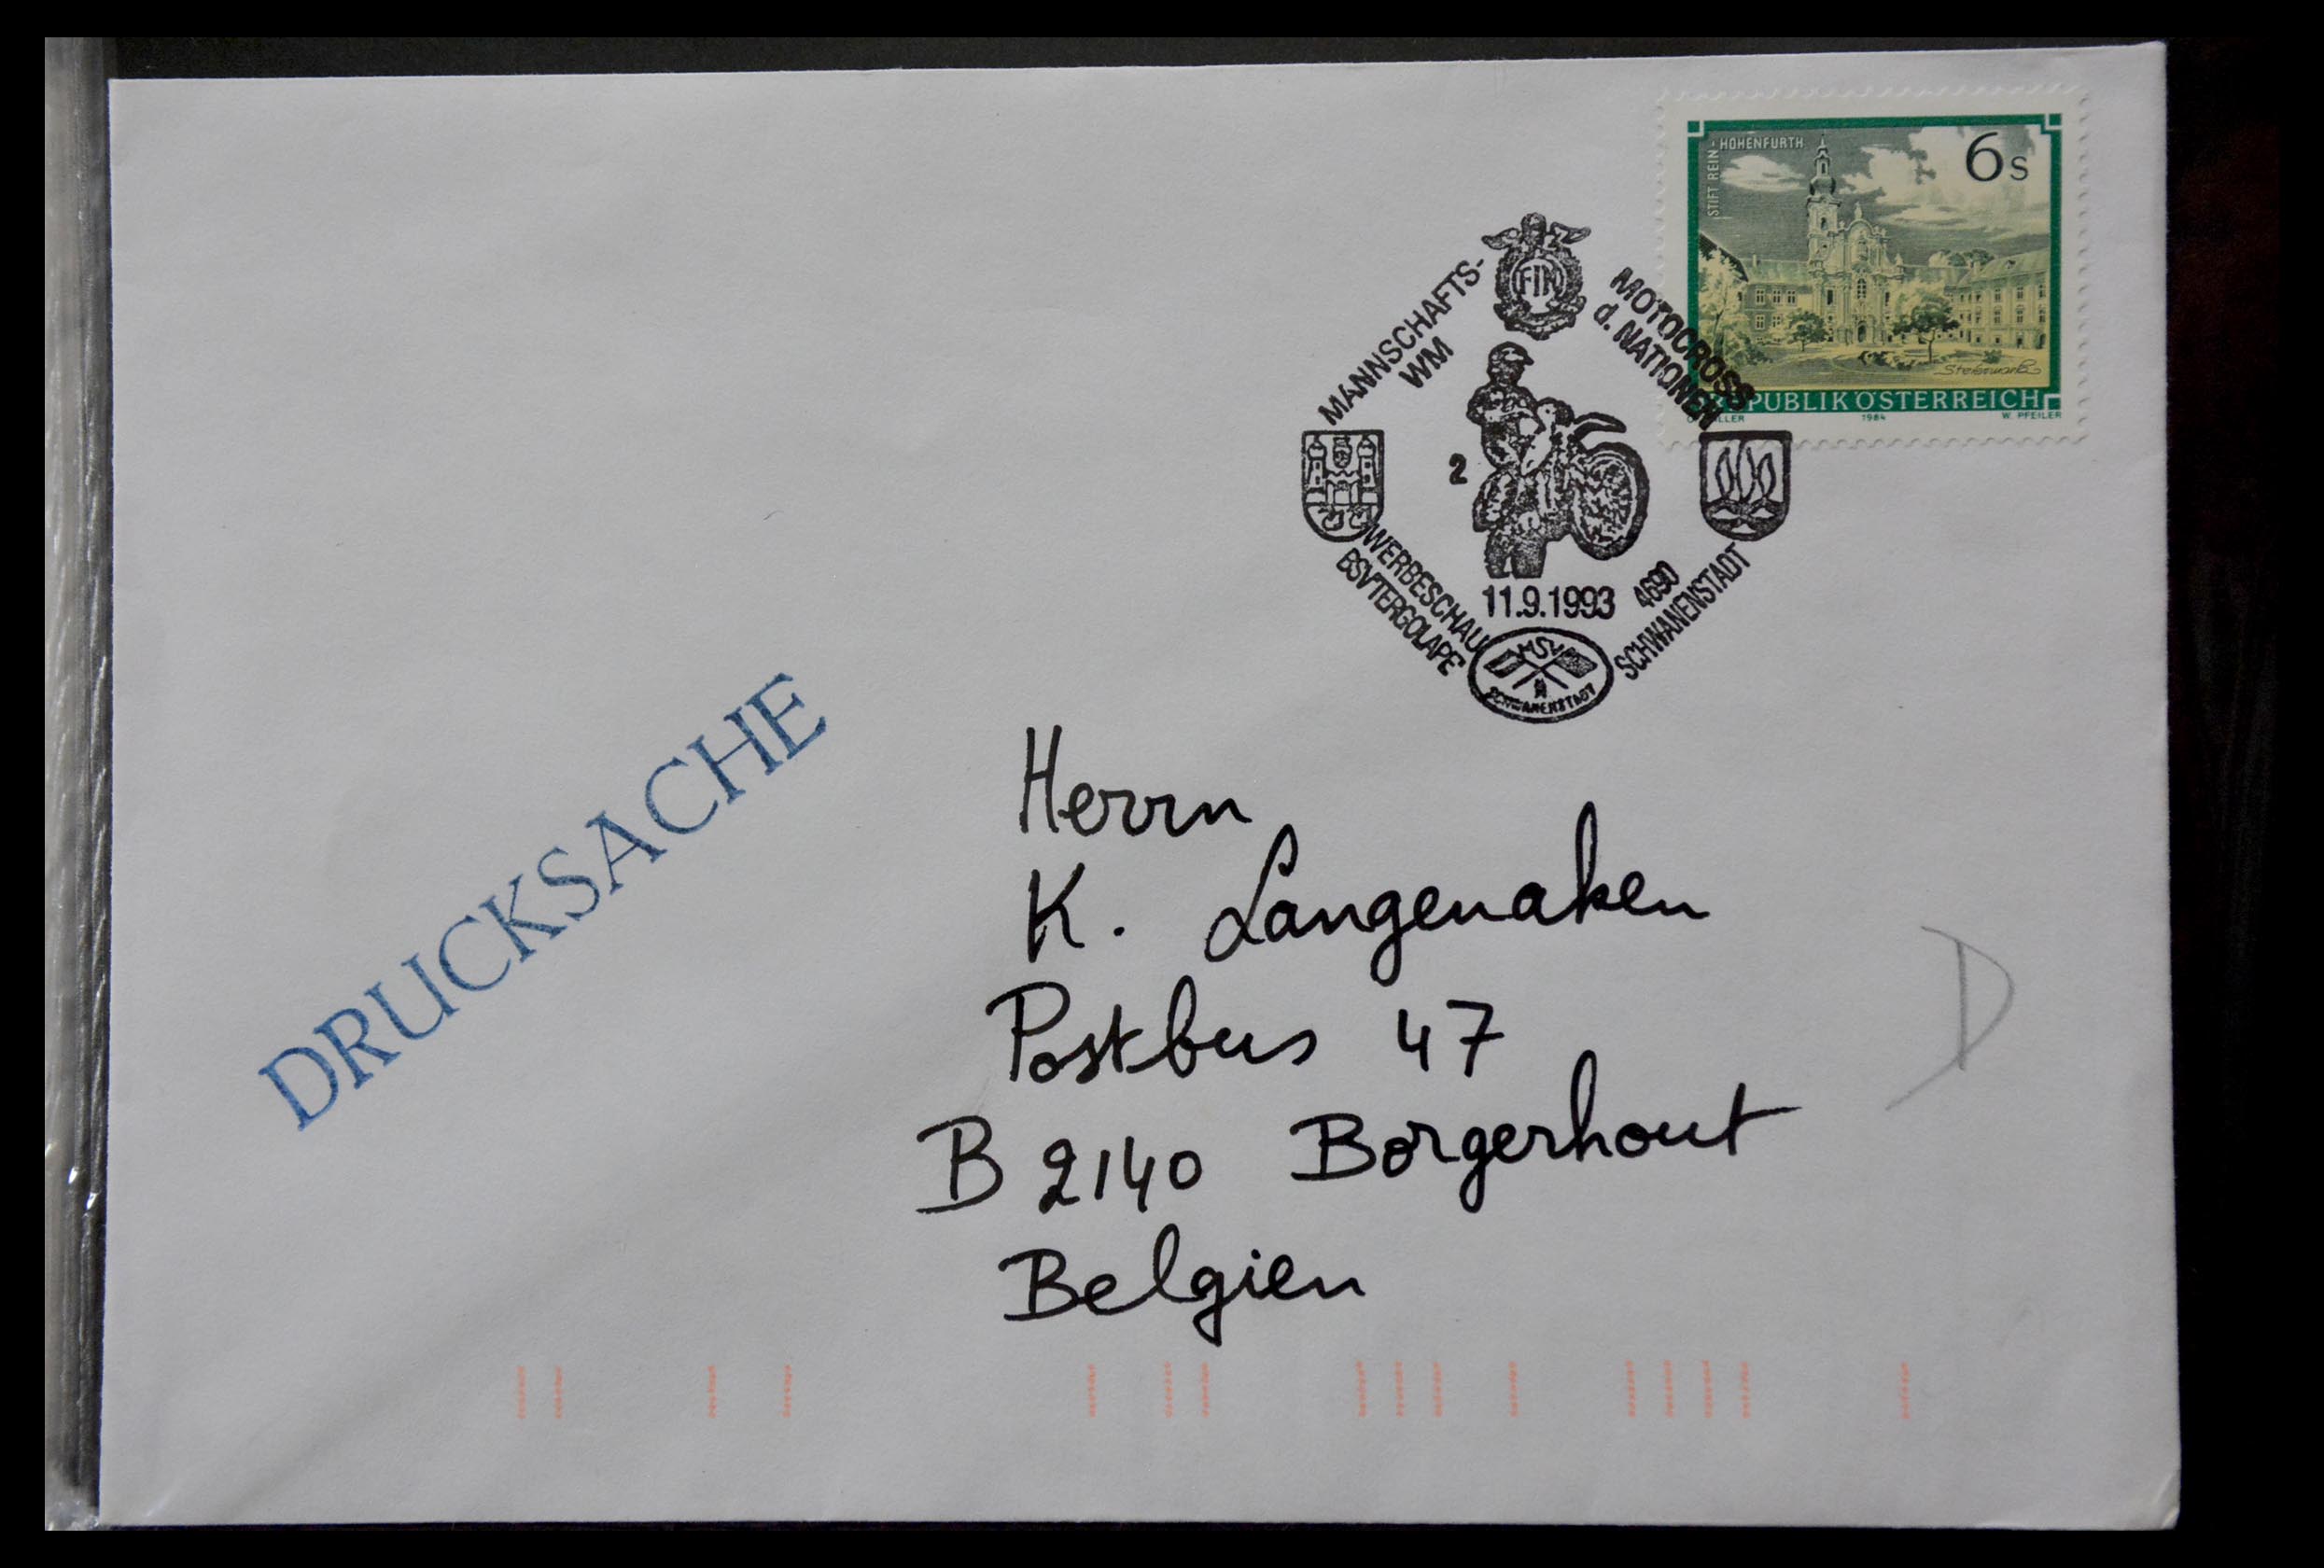 STIFT REIN-HOHENFURTH
6s
Steiermark
REPUBLIK ÖSTERREICH
1984
W. PFEILER
FIM
MANNSCHAFTS-
WM
MOTOCROSS
d. NATIONEN
2
WERBESCHAU
BSVTERGOLAPE
11.9.1993
4690
SCHWANENSTADT
MSV
SCHWANENSTADT
DRUCKSACHE
Herrn
K. Langenaken
Postbus 47
B 2140 Borgerhout
Belgien
D